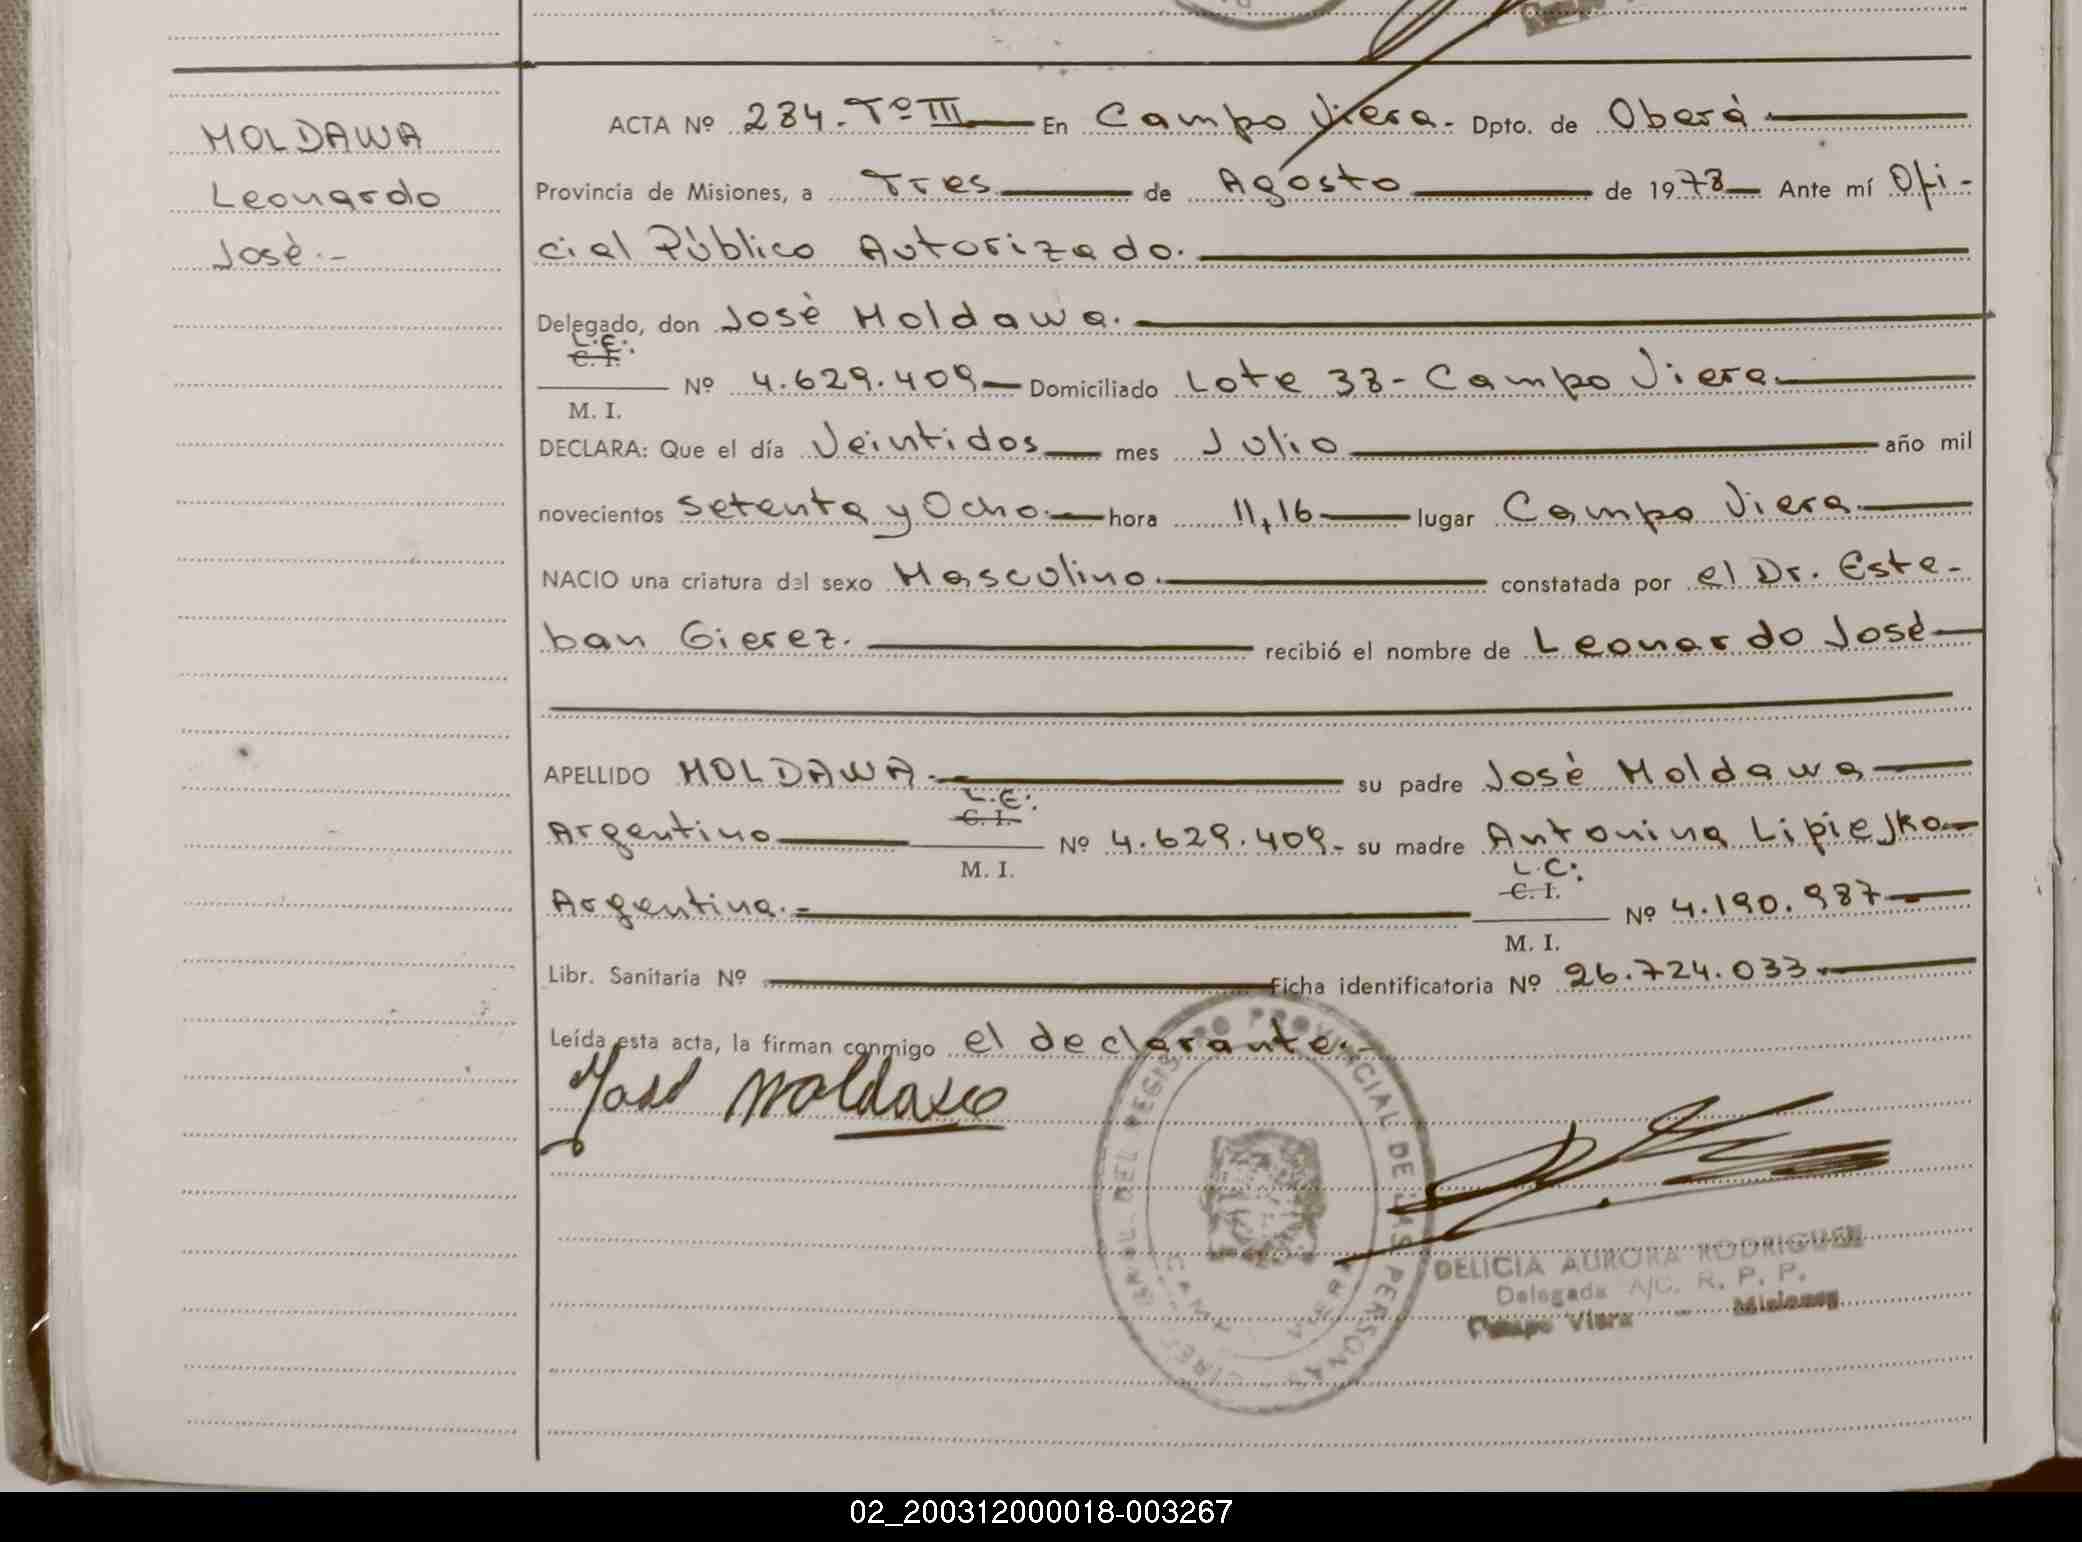 MOLDAWA
Leonardo
José.-
ACTA Nº 284.Tº III En Campo Viera. Dpto. de Oberá
Provincia de Misiones, a Tres de Agosto de 1978 Ante mí Ofi-
cial Público Autorizado.
Delegado, don José Moldawa.
L.E:
C. I.
Nº 4.629.409 Domiciliado Lote 38-Campo Viera
M. I.
DECLARA: Que el día Veintidos mes Julio año mil
novecientos Setenta y Ocho hora 11,16 lugar Campo Viera
NACIO una criatura del sexo Masculino. constatada por el Dr. Este-
ban Gierez. recibió el nombre de Leonardo José
APELLIDO MOLDAWA. su padre José Moldawa
L.E:
C. I.
Argentino Nº 4.629.409. su madre Antonina Lipiejko
M. I.
L.C:
C. I.
Argentina.- Nº 4.190.987
M. I.
Libr. Sanitaria Nº Ficha identificatoria Nº 26.724.033
Leída esta acta, la firman conmigo el declarante.
José Moldawa
DEL REGISTRO PROVINCIAL DE LAS PERSONAS
DELICIA AURORA RODRIGUEZ
Delegada A/C. R. P. P.
Campo Viera - Misiones
02_200312000018-003267